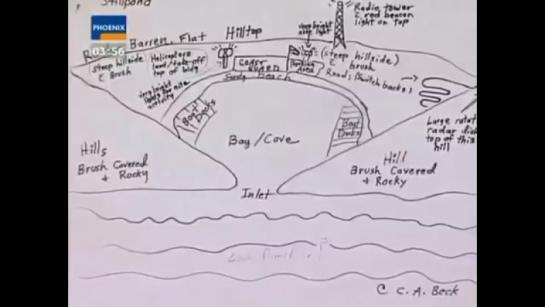 Stillpond
PHOENIX
03:56
Barren Flat Hilltop
Radio tower
& red beacon
light on top
steep hillside
& Brush
Helicopters
land/take-off
top of bldg
(steep hillside)
& brush
Parking
Area
Roads (Switchbacks)
Sandy Beach
very bright
Boat
Docks
Boat
Docks
Bay/Cove
Large
radar dish
top of this
hill
Hills
Brush Covered
& Rocky
Hill
Brush Covered
& Rocky
Inlet
C. A. Beck